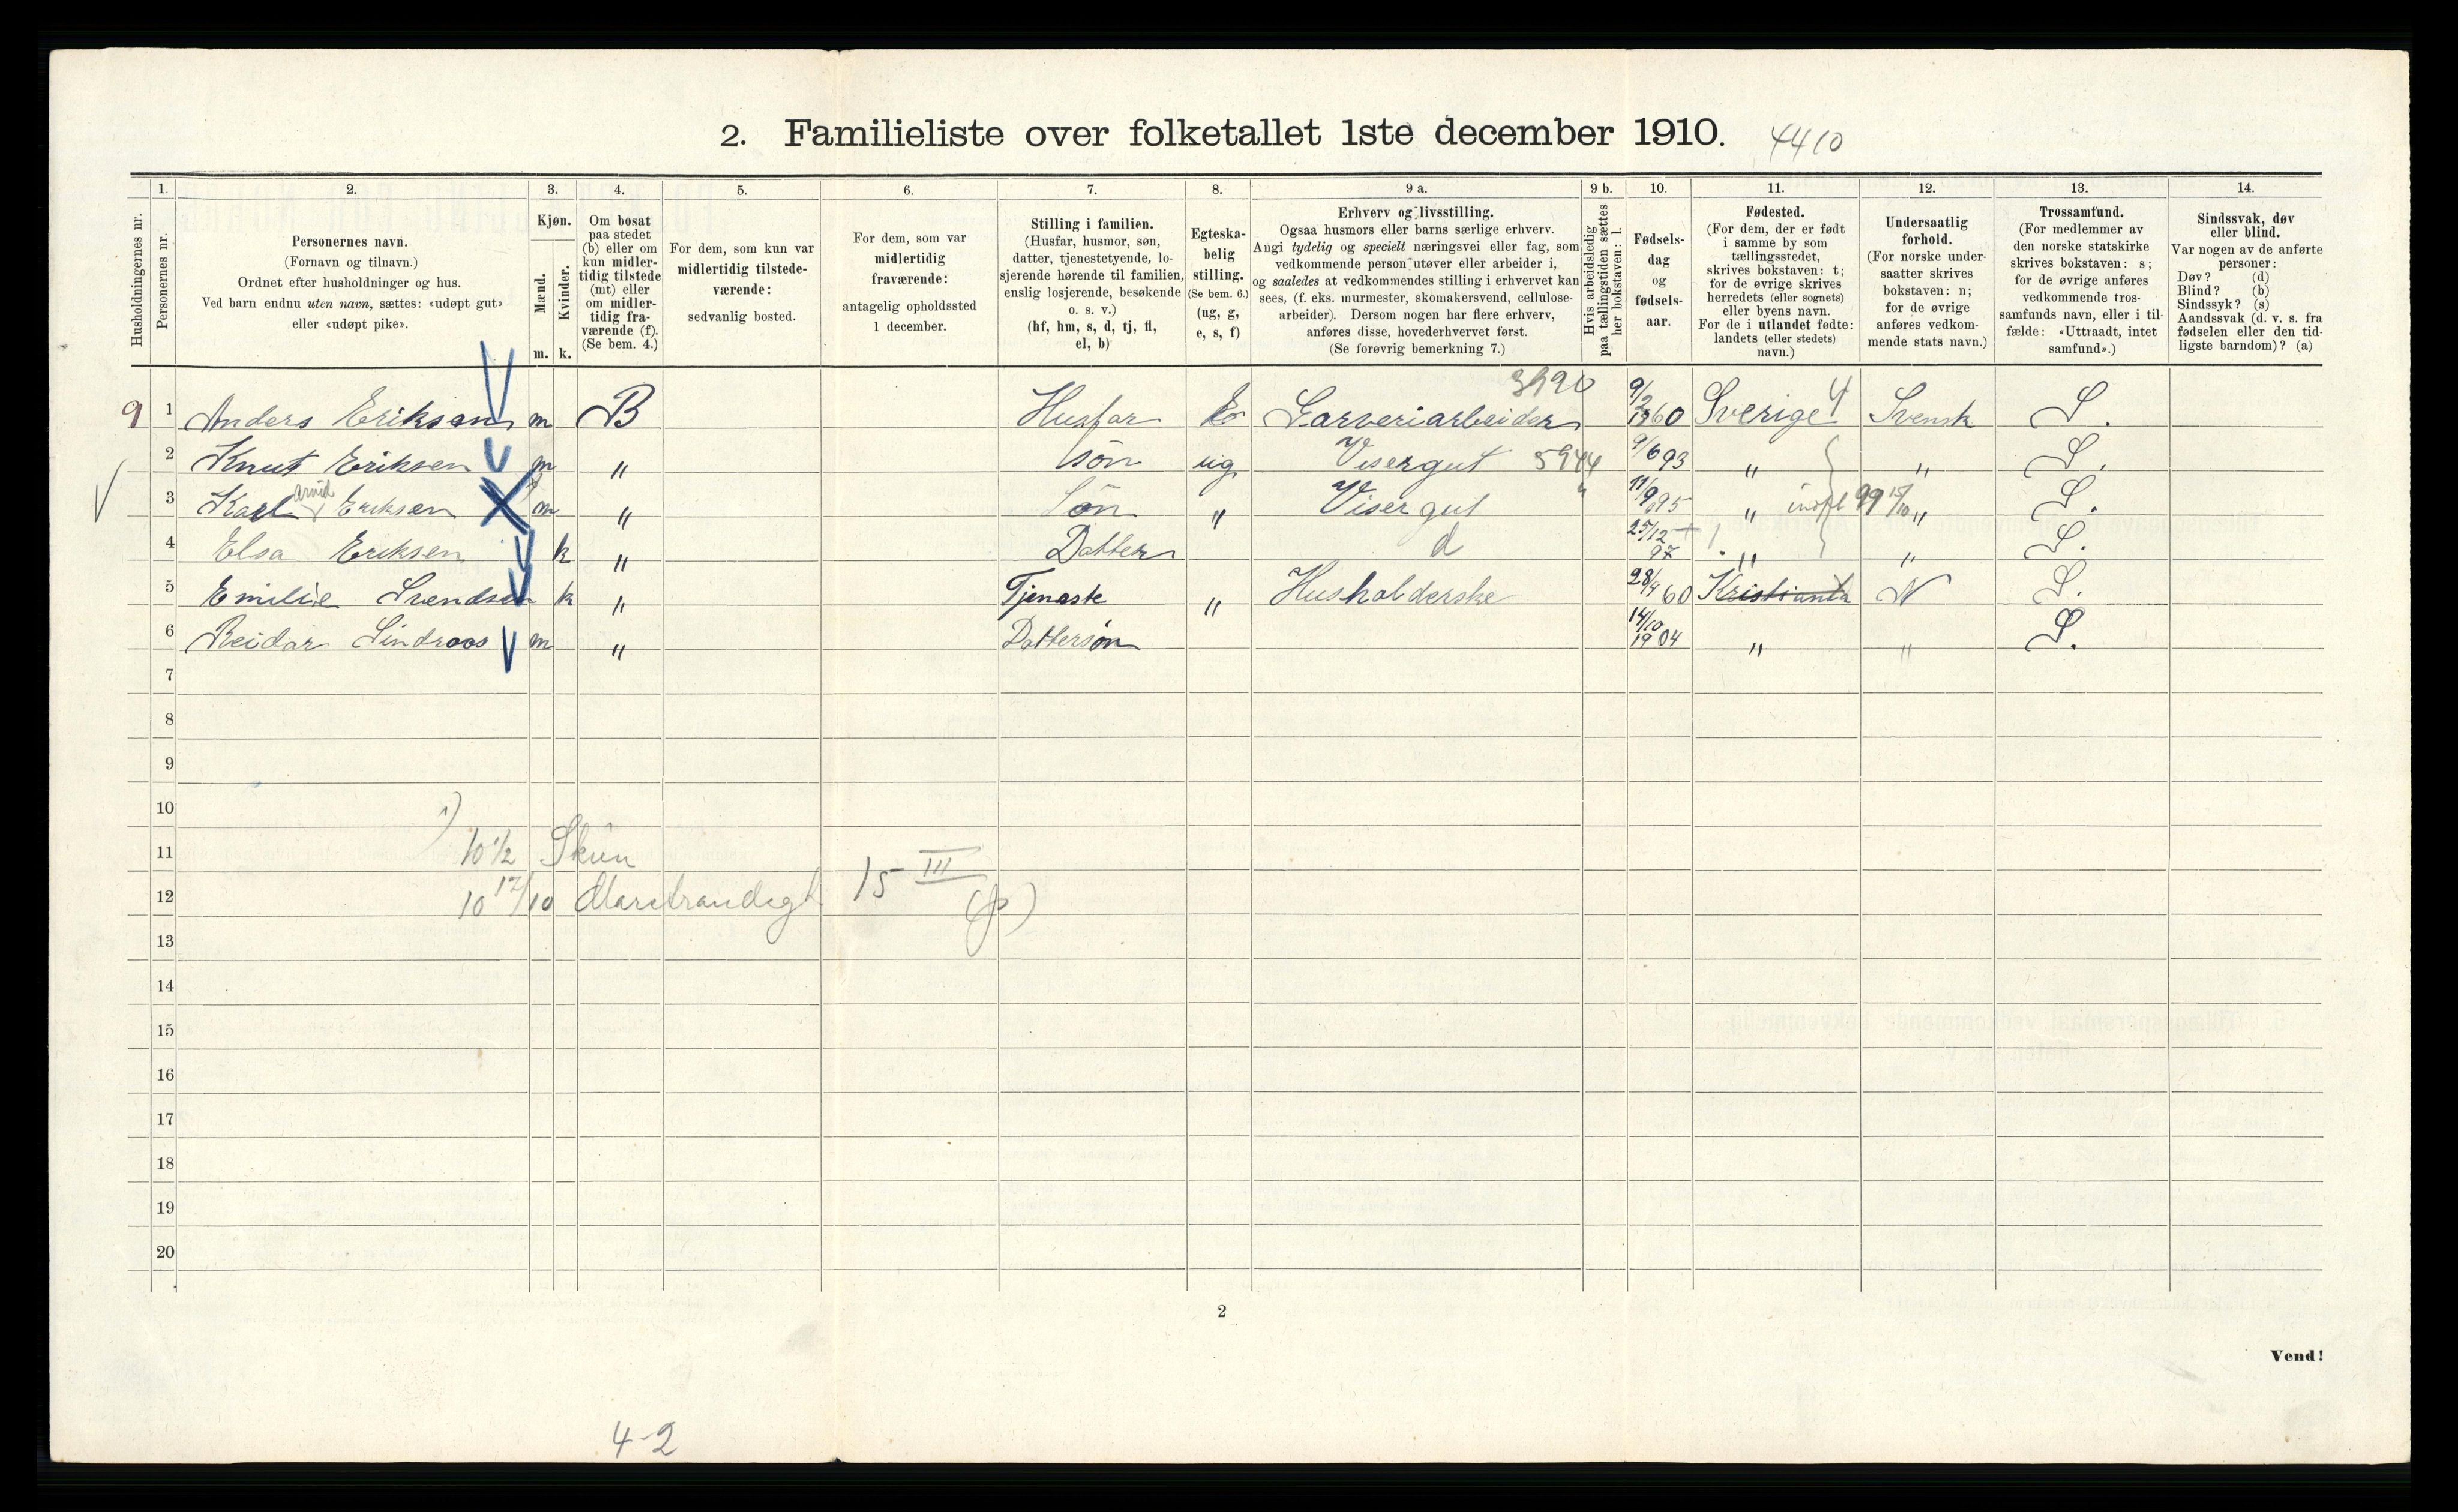 2. Familieliste over folketallet 1ste december 1910. 4410
1. 2. 3. 4. 5. 6. 7. 8. 9 a. 9 b. 10. 11. 12. 13. 14.
Husholdningernes nr.
Personernes nr.
Personernes navn.
(Fornavn og tilnavn.)
Ordnet efter husholdninger og hus.
Ved barn endnu uten navn, sættes: «udøpt gut»
eller «udøpt pike».
Kjøn.
Mænd.
Kvinder.
m. k.
Om bosat
paa stedet
(b) eller om
kun midler-
tidig tilstede
(mt) eller
om midler-
tidig fra-
værende (f).
(Se bem. 4.)
For dem, som kun var
midlertidig tilstede-
værende:
sedvanlig bosted.
For dem, som var
midlertidig
fraværende:
antagelig opholdssted
1 december.
Stilling i familien.
(Husfar, husmor, søn,
datter, tjenestetyende, lo-
sjerende hørende til familien,
enslig losjerende, besøkende
o. s. v.)
(hf, hm, s, d, tj, fl,
el, b)
Egteska-
belig
stilling.
(Se bem. 6.)
(ug, g,
e, s, f)
Erhverv og livsstilling.
Ogsaa husmors eller barns særlige erhverv.
Angi tydelig og specielt næringsvei eller fag, som
vedkommende person utøver eller arbeider i,
og saaledes at vedkommendes stilling i erhvervet kan
sees, (f. eks. murmester, skomakersvend, cellulose-
arbeider). Dersom nogen har flere erhverv,
anføres disse, hovederhvervet først.
(Se forøvrig bemerkning 7.)
Hvis arbeidsledig
paa tællingstiden sættes
her bokstaven: l.
Fødsels-
dag
og
fødsels-
aar.
Fødested.
(For dem, der er født
i samme by som
tællingsstedet,
skrives bokstaven: t;
for de øvrige skrives
herredets (eller sognets)
eller byens navn.
For de i utlandet fødte:
landets (eller stedets)
navn.)
Undersaatlig
forhold.
(For norske under-
saatter skrives
bokstaven: n;
for de øvrige
anføres vedkom-
mende stats navn.)
Trossamfund.
(For medlemmer av
den norske statskirke
skrives bokstaven: s;
for de øvrige anføres
vedkommende tros-
samfunds navn, eller i til-
fælde: «Uttraadt, intet
samfund».)
Sindssvak, døv
eller blind.
Var nogen av de anførte
personer:
Døv? (d)
Blind? (b)
Sindssyk? (s)
Aandssvak (d. v. s. fra
fødselen eller den tid-
ligste barndom)? (a)
9 1 Anders Eriksen m B Husfar E Garveriarbeider 3920 9/2 1860 Sverige 4 Svensk S.
2 Knut Eriksen m " Søn ug Visergut 5944 9/6 93 " " S.
3 Karl Arvid Eriksen m " Søn " Visergut " 11/9 95 " indfl 99 15/10 " S.
4 Elsa Eriksen k " Datter d 25/12 97 " " S.
5 Emilie Svendsen k " Tjeneste " Husholderske 28/4 60 Kristiania N S.
6 Reidar Lindroos m " Dattersøn 14/10 1904 " " S.
7
8
9
10
1)
11 10 1/2 Skun
12 10 17/10 Marstrandsgt 15 III (p)
13
14
15
16
17
18
19
20
2
Vend!
4-2